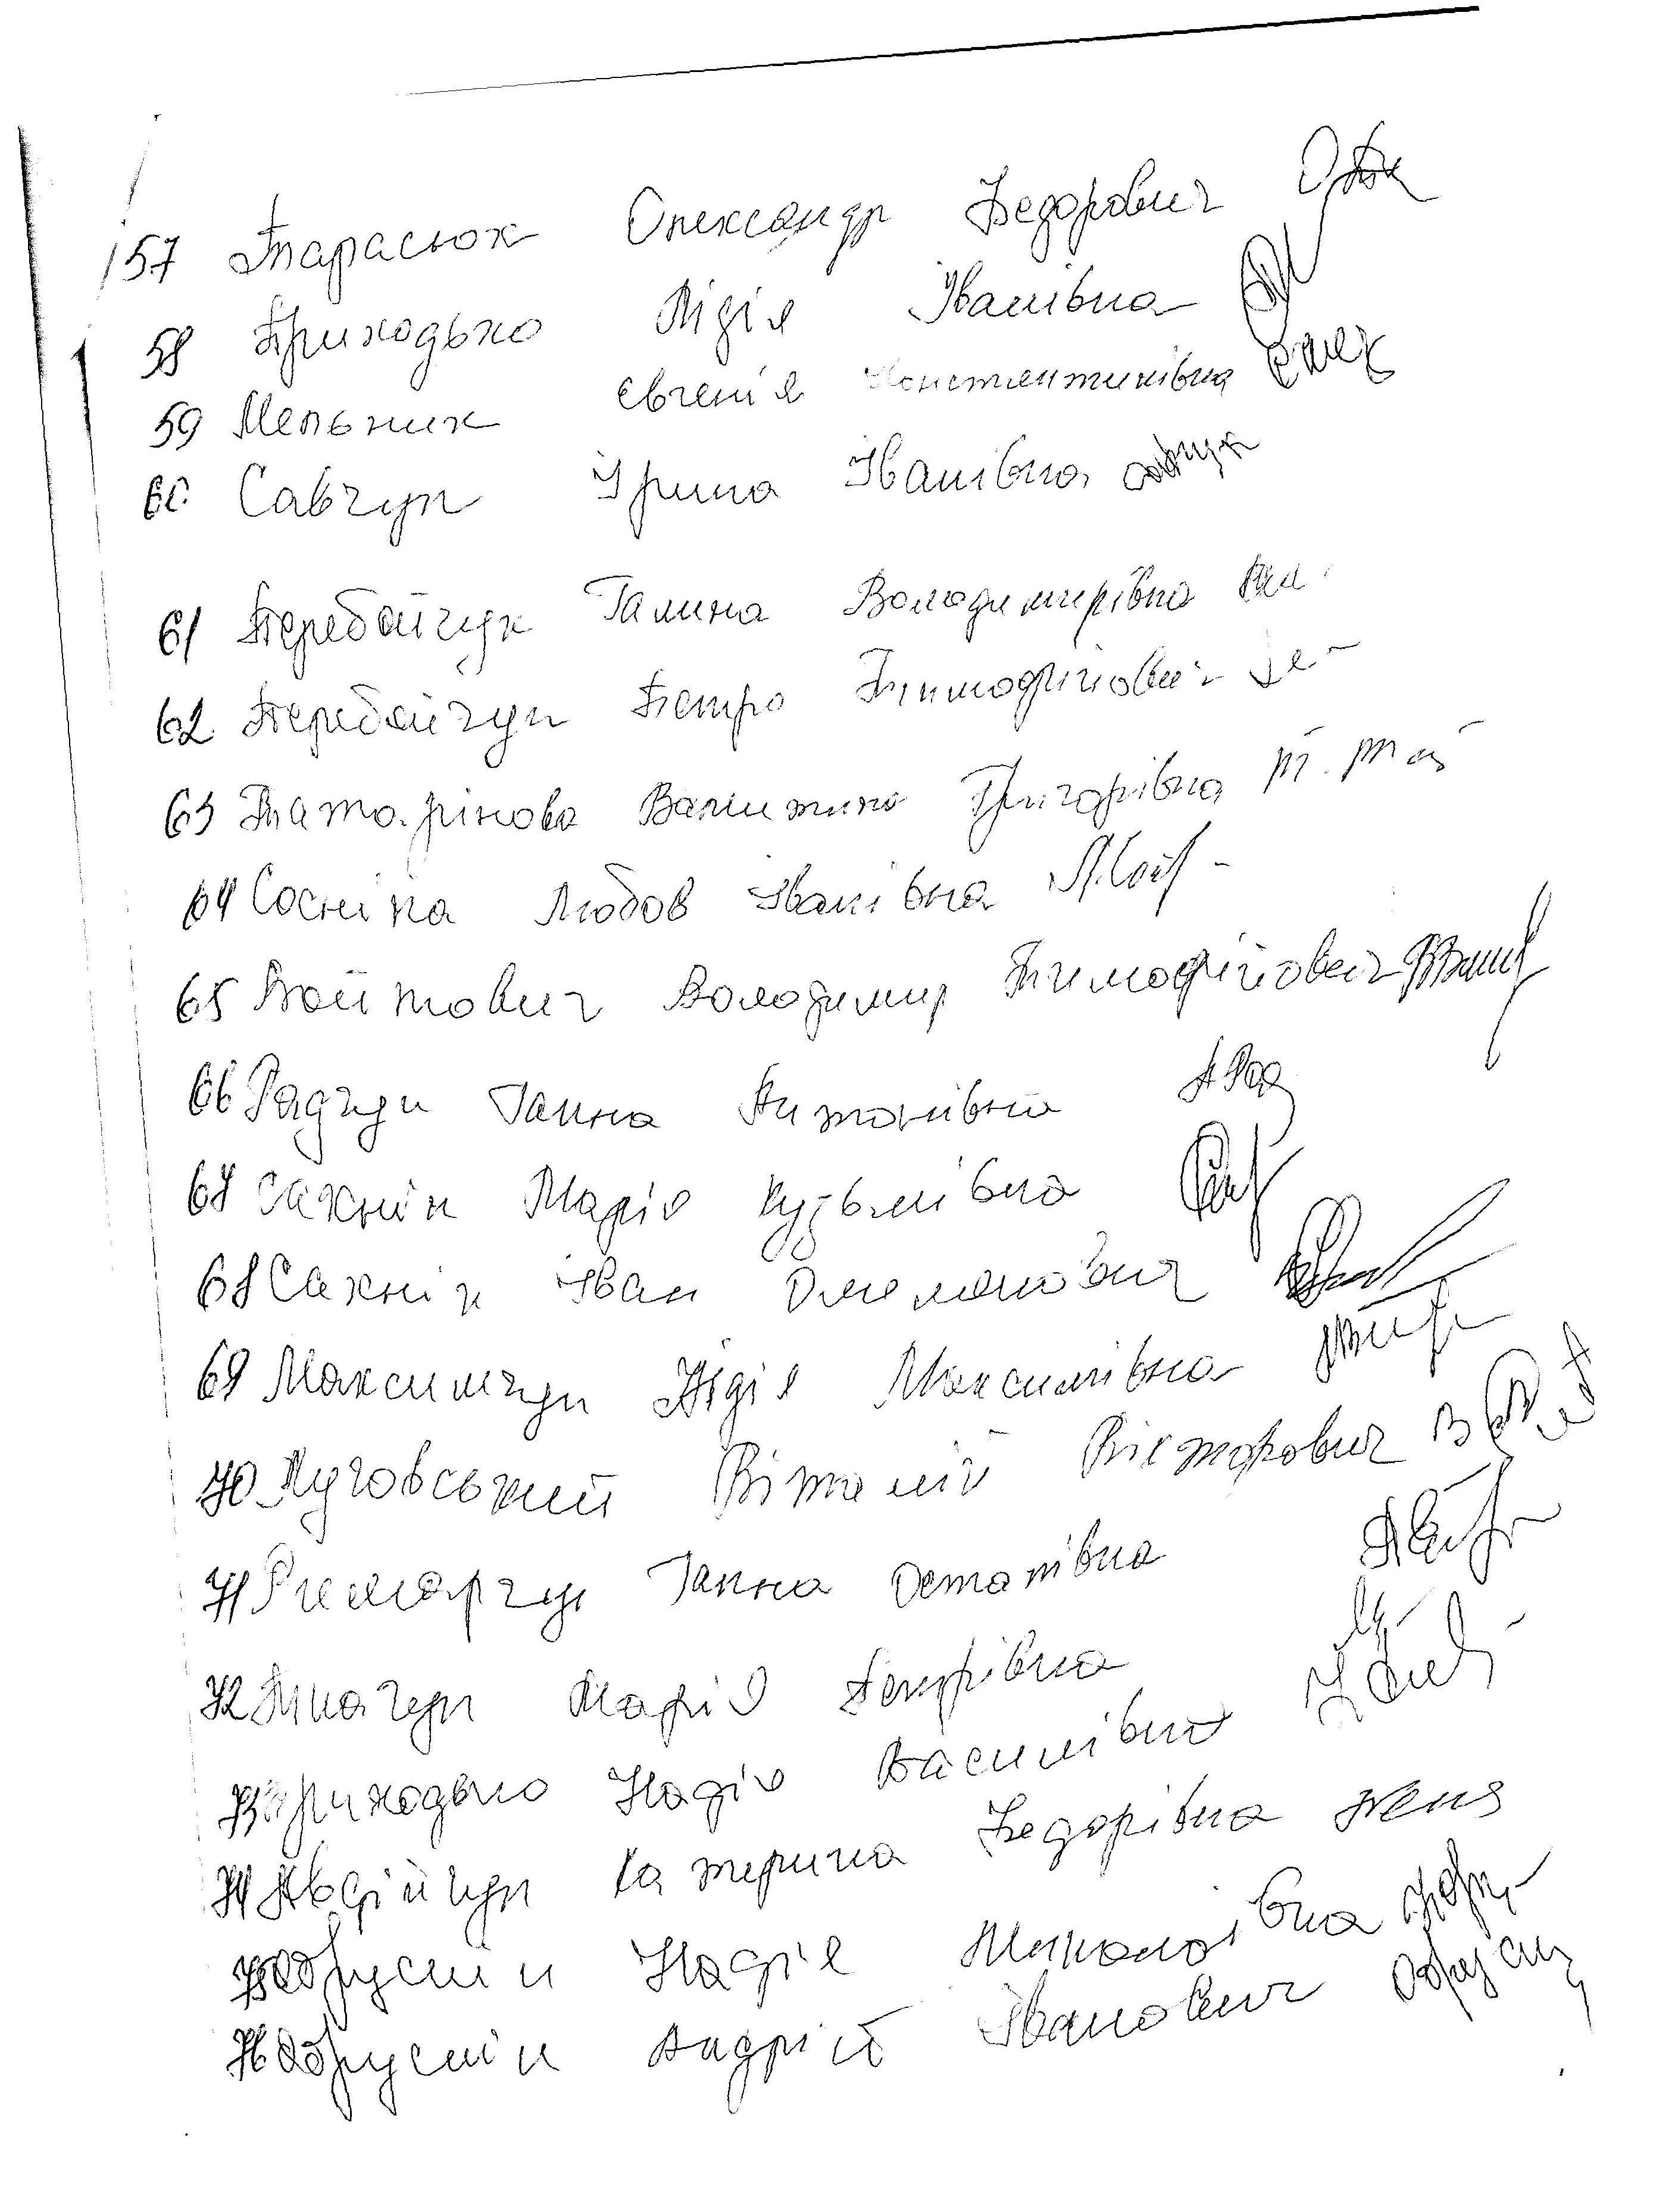 57 Тарасюк Олександр Федорович
58 Приходько Лідія Іванівна
59 Мельник Євгенія Константинівна
60 Савчук Ірина Іванівна Савчук
61 Перебойчук Галина Володимирівна
62 Перебойчук Петро Тимофійович
63 Татарінова Валентина Григорівна
64 Сосніна Любов Іванівна
65 Войтович Володимир Тимофійович
66 Радчук Ганна Антонівна
67 Сахнік Марія Кузьмівна
68 Сахнік Іван Омелянович
69 Максимчук Лідія Максимівна
70 Луговський Віталій Вікторович
71 Римарчук Ганна Остапівна
72 Ткачук Марія Петрівна
73 Приходько Надія Василівна
74 Авдійчук Катерина Федорівна
75 Обруснік Надія Миколаївна
76 Обруснік Андрій Іванович